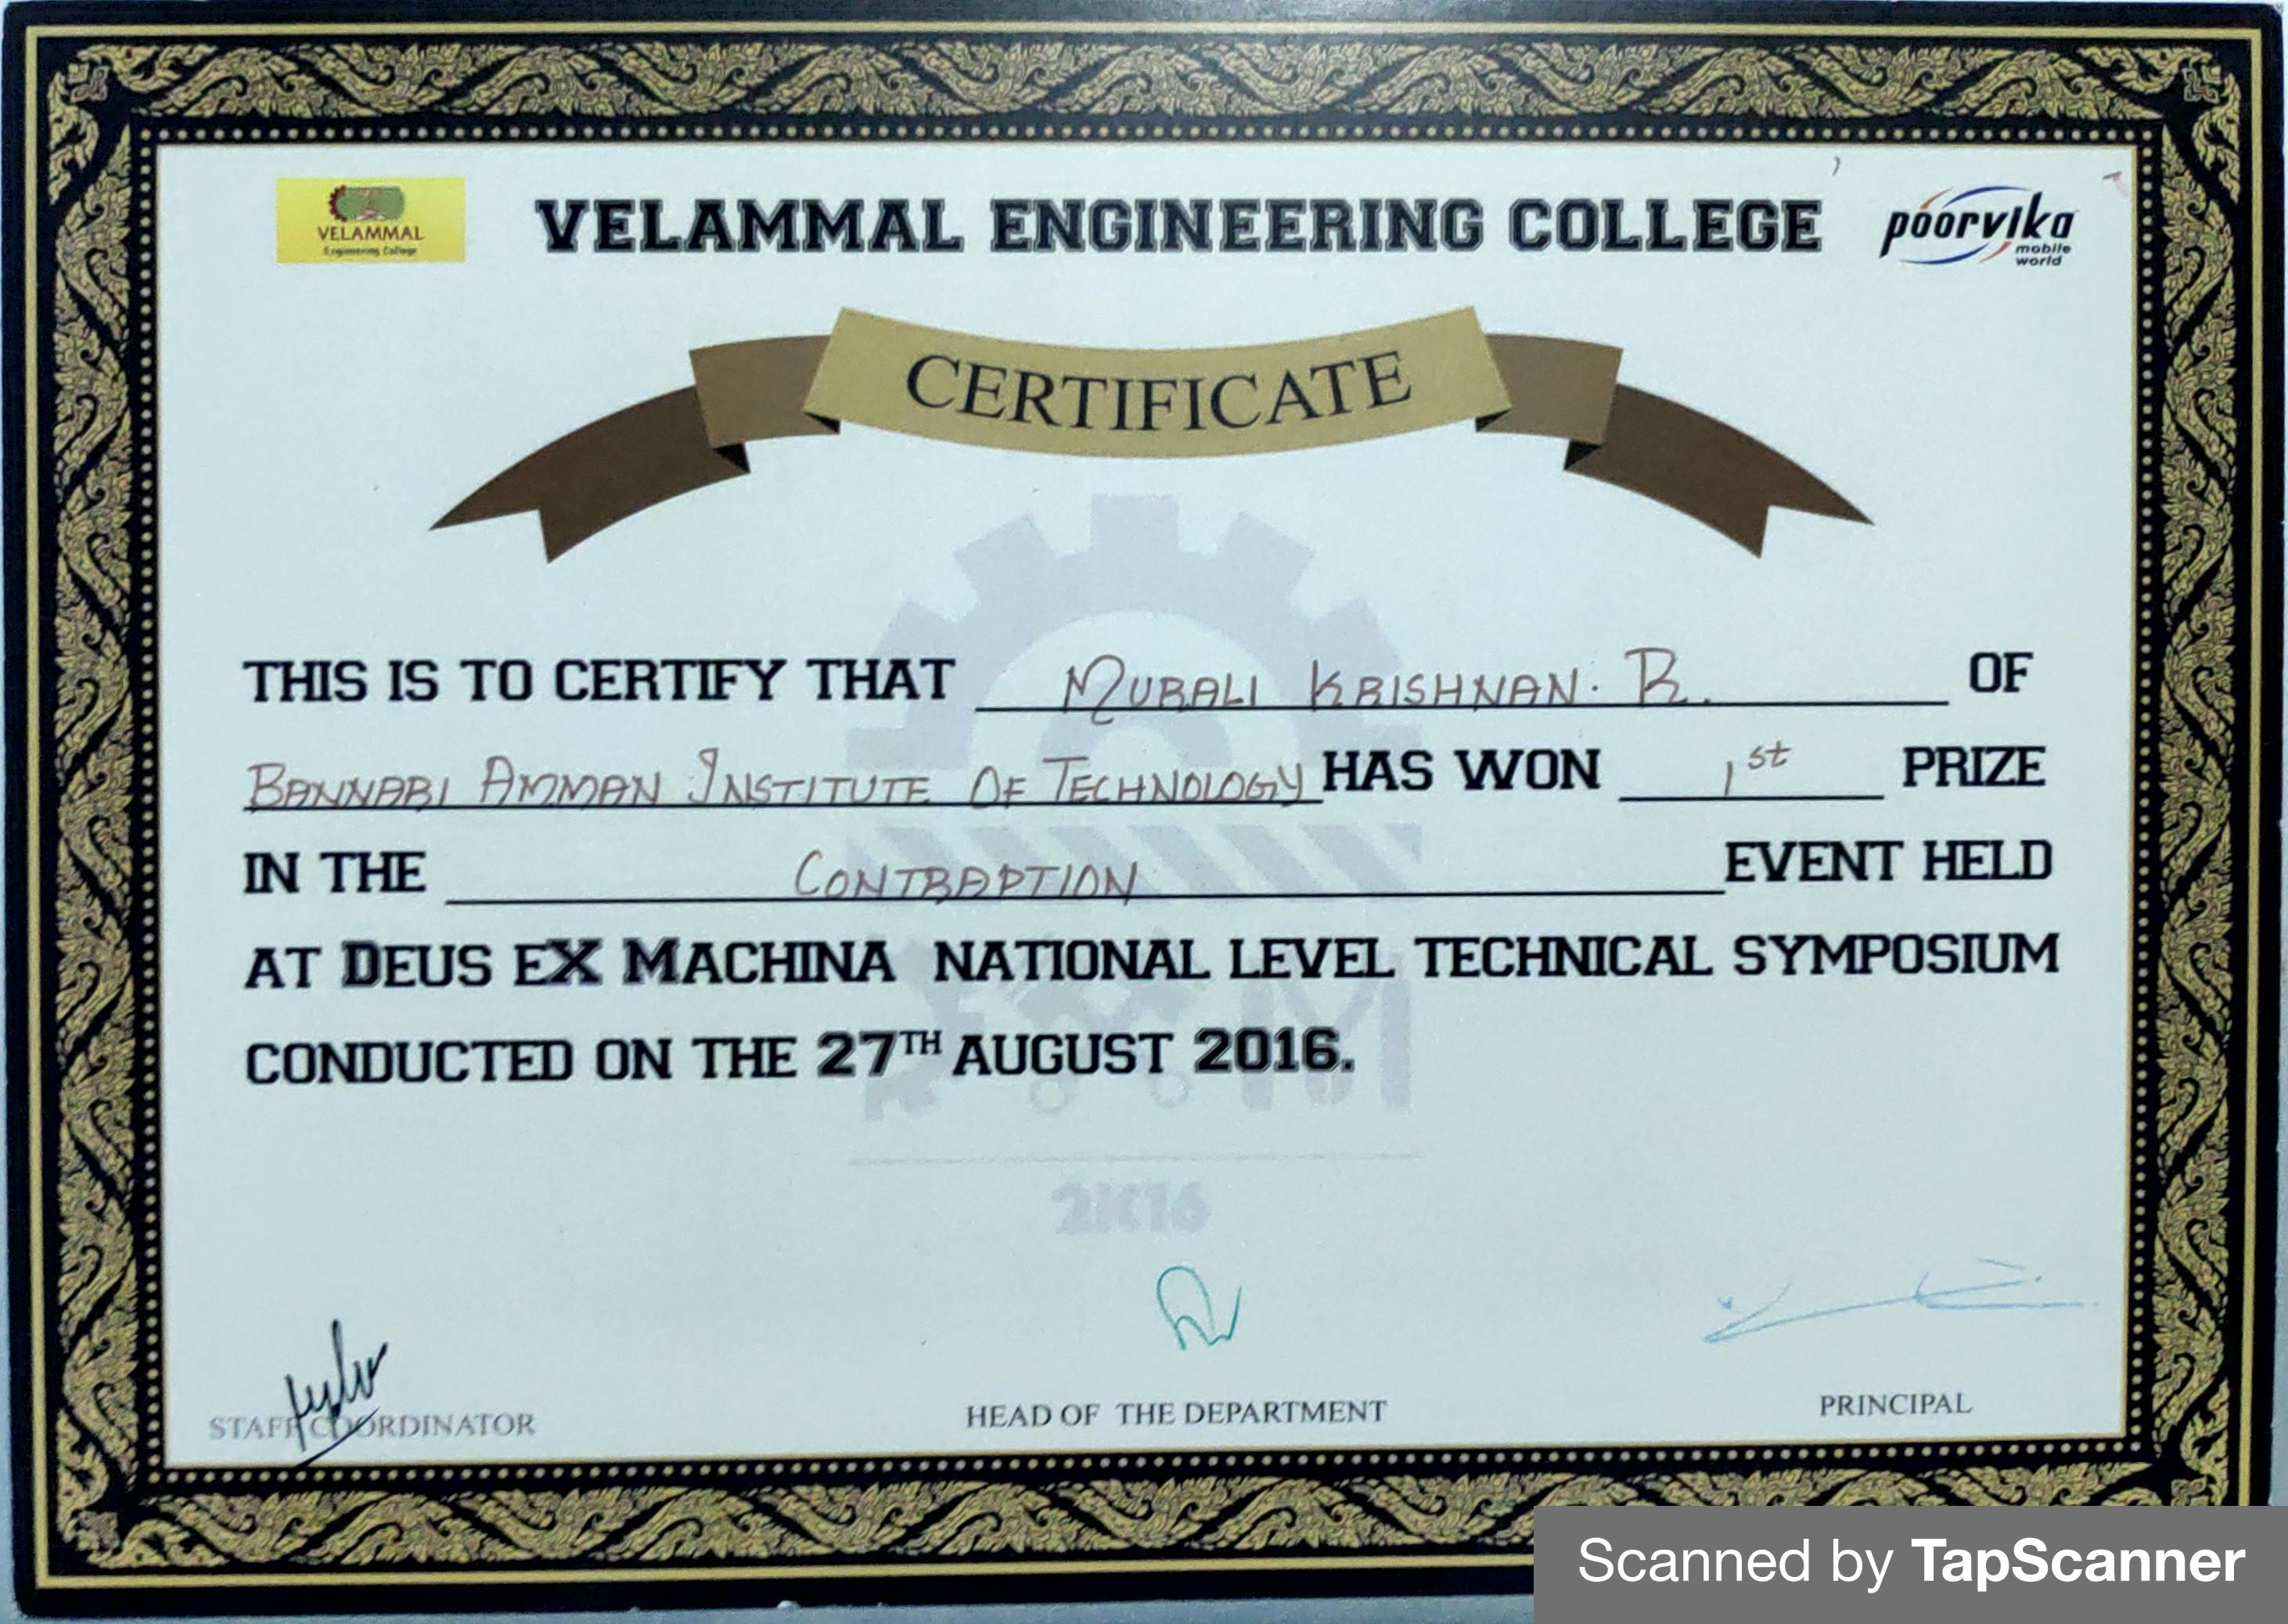 VELAMMAL
Engineering College
VELAMMAL ENGINEERING COLLEGE
poorvika
mobile
world
CERTIFICATE
THIS IS TO CERTIFY THAT MURALI KRISHNAN. R. OF
BANNARI AMMAN INSTITUTE OF TECHNOLOGY HAS WON 1st PRIZE
IN THE CONTRAPTION EVENT HELD
AT DEUS EX MACHINA NATIONAL LEVEL TECHNICAL SYMPOSIUM
CONDUCTED ON THE 27TH AUGUST 2016.
2K16
STAFF COORDINATOR
HEAD OF THE DEPARTMENT
PRINCIPAL
Scanned by TapScanner